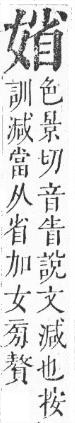 媘
色景切音眚說文減也按
訓減當从省加女旁贅